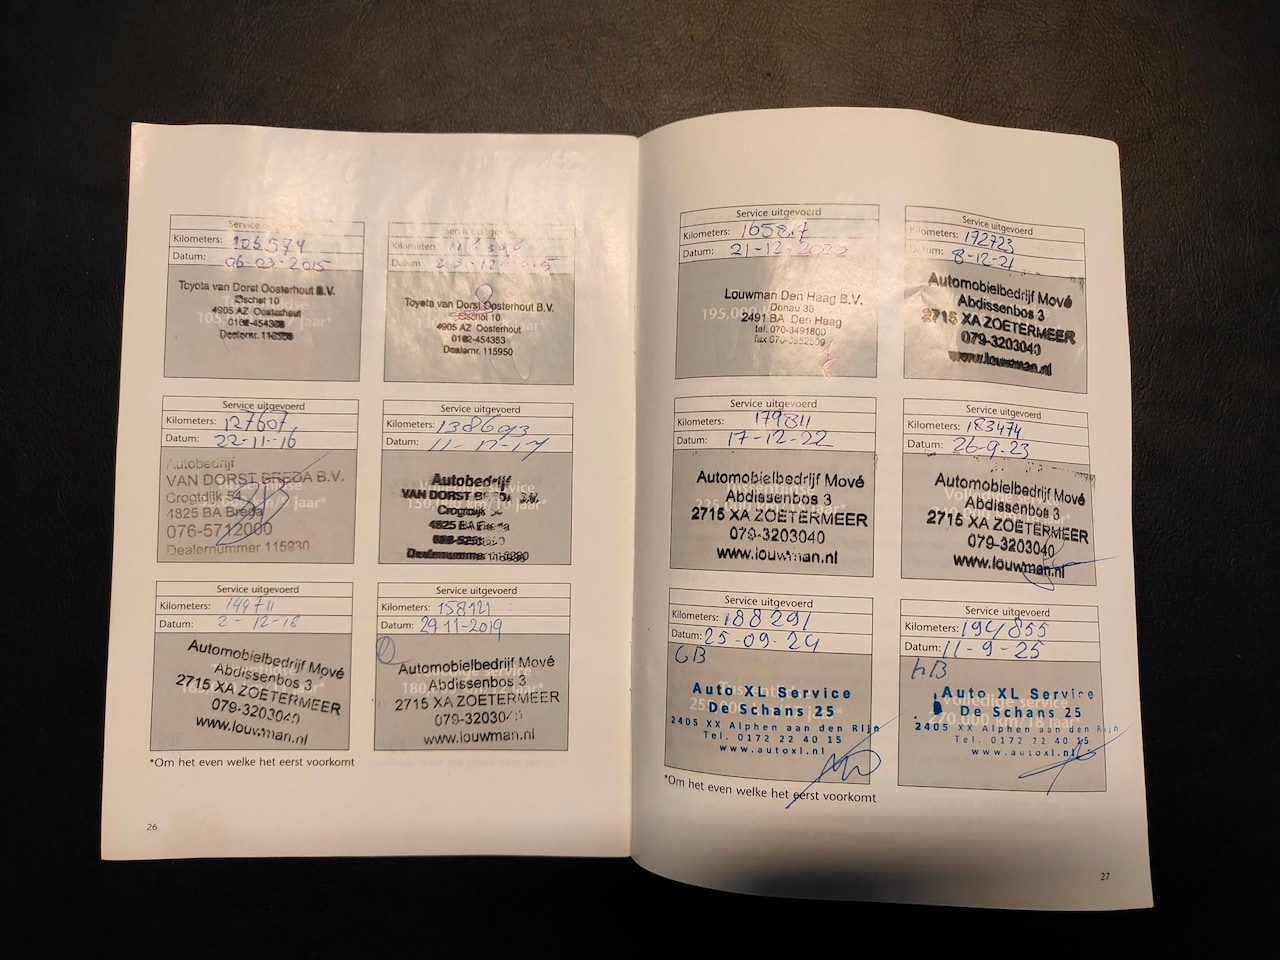 Service
Kilometers: 106574
Datum: 06-03-2015
Toyota van Dorst Oosterhout B.V.
Elschot 10
4905 AZ Oosterhout
Service uitgevoerd
Kilometers:
Datum:
Toyota van Dorst Oosterhout B.V.
Elschot 10
4905 AZ Oosterhout
0162-454353
Dealernr. 115950
Service uitgevoerd
Kilometers: 127607
Datum: 22-11-16
Autobedrijf
VAN DORST BREDA B.V.
Crogtdijk 54
4825 BA Breda
076-5712000
Dealernummer 115930
Service uitgevoerd
Kilometers: 138693
Datum: 11-12-17
Autobedrijf
VAN DORST BREDA B.V.
Crogtdijk
4825 BA Breda
Dealernummer
150,000 km/10 jaar*
Service uitgevoerd
Kilometers: 149711
Datum: 2-12-18
Automobielbedrijf Mové
Abdissenbos 3
2715 XA ZOETERMEER
079-3203040
www.louwman.nl
Service uitgevoerd
Kilometers: 158121
Datum: 29-11-2019
Automobielbedrijf Mové
Abdissenbos 3
2715 XA ZOETERMEER
079-3203040
www.louwman.nl
*Om het even welke het eerst voorkomt
26
Service uitgevoerd
Kilometers: 165817
Datum: 21-12-2020
Louwman Den Haag B.V.
Donau 36
2491 BA Den Haag
tel. 070-3491800
Service uitgevoerd
Kilometers: 172723
Datum: 8-12-21
Automobielbedrijf Mové
Abdissenbos 3
2715 XA ZOETERMEER
079-3203040
www.louwman.nl
Service uitgevoerd
Kilometers: 179811
Datum: 17-12-22
Automobielbedrijf Mové
Abdissenbos 3
2715 XA ZOETERMEER
079-3203040
www.louwman.nl
Service uitgevoerd
Kilometers: 183474
Datum: 26-9-23
Automobielbedrijf Mové
Abdissenbos 3
2715 XA ZOETERMEER
079-3203040
www.louwman.nl
Service uitgevoerd
Kilometers: 188291
Datum: 25-09-24
GB
Auto XL Service
De Schans 25
2405 XX Alphen aan den Rijn
Tel. 0172 22 40 15
www.autoxl.nl
Service uitgevoerd
Kilometers: 194855
Datum: 11-9-25
Auto XL Service
De Schans 25
2405 XX Alphen aan den Rijn
Tel. 0172 22 40 15
www.autoxl.nl
270,000 km/18 jaar*
*Om het even welke het eerst voorkomt
27